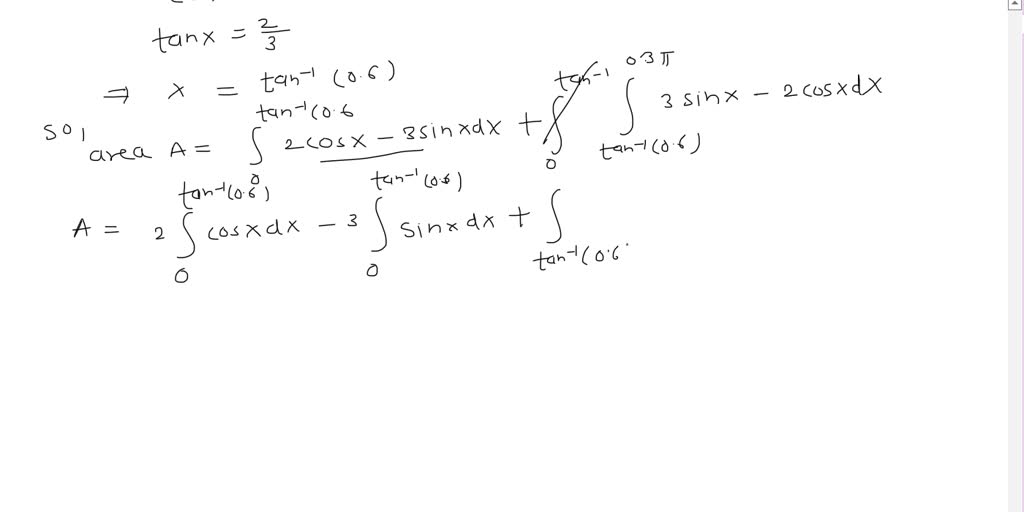 tanx = 2/3
⇒ x = tan⁻¹ (0.6)
so, area A = ∫₀^{tan⁻¹(0.6} 2cosx − 3sinxdx + ∫₀^{tan⁻¹} ∫_{tan⁻¹(0.6)}^{0.3π} 3 sinx − 2cosxdx
A = 2 ∫₀^{tan⁻¹(0.6)} cosxdx − 3 ∫₀^{tan⁻¹(0.6)} sinxdx + ∫_{tan⁻¹(0.6}